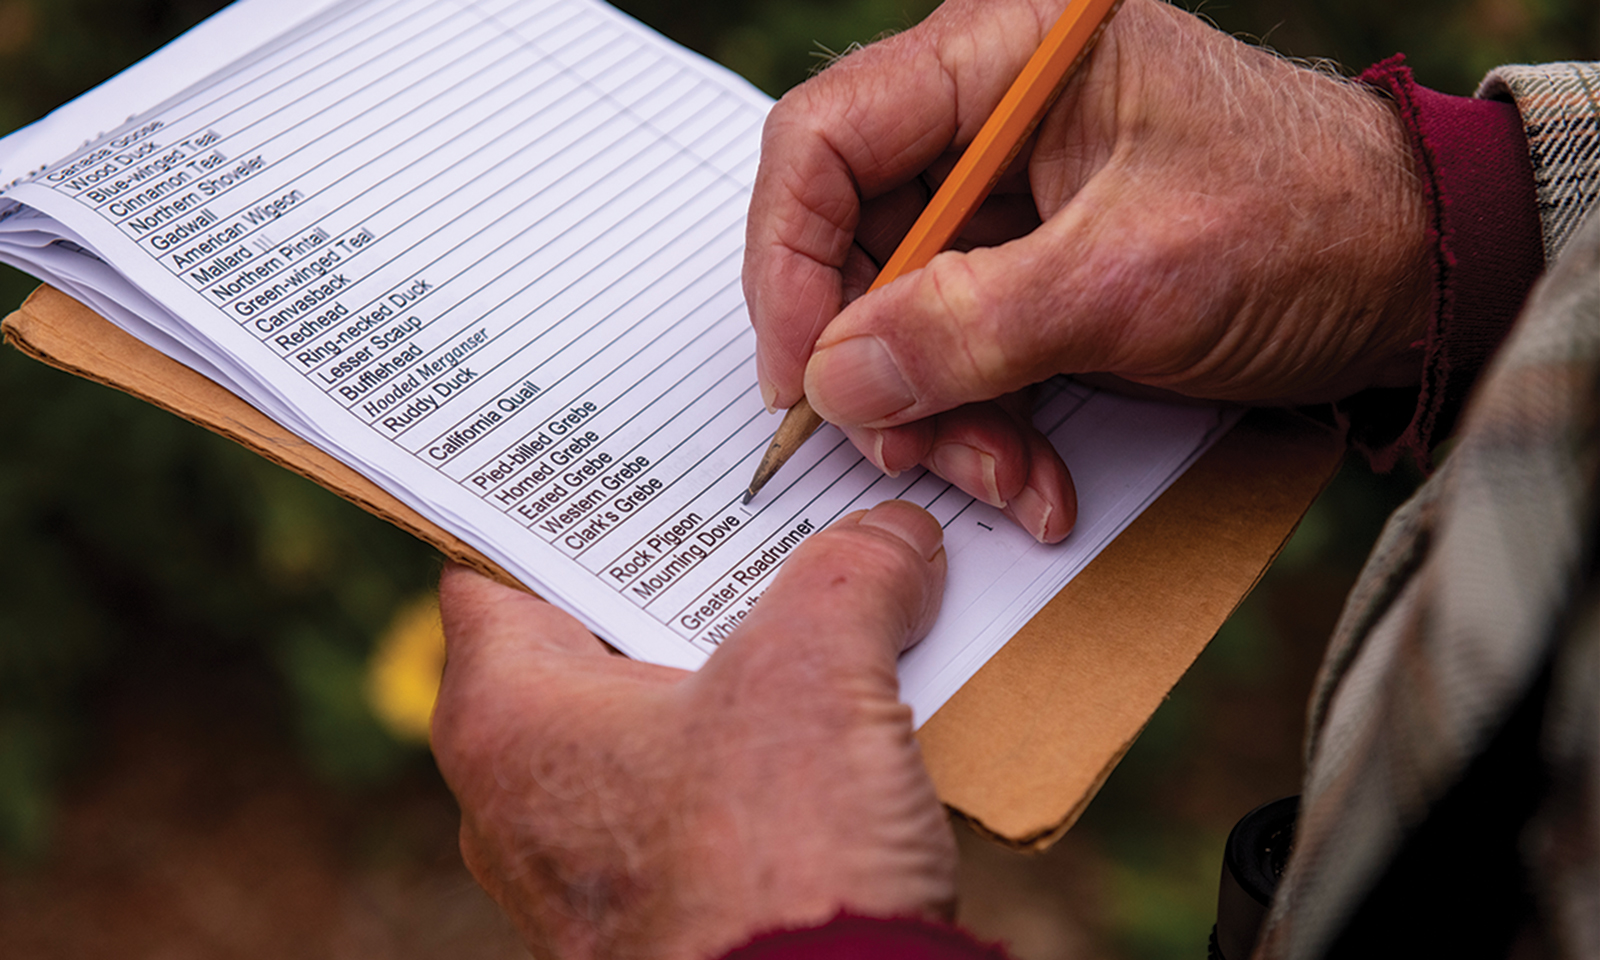 Canada Goose
Wood Duck
Blue-winged Teal
Cinnamon Teal
Northern Shoveler
Gadwall
American Wigeon
Mallard |||
Northern Pintail
Green-winged Teal
Canvasback
Redhead
Ring-necked Duck
Lesser Scaup
Bufflehead
Hooded Merganser
Ruddy Duck
California Quail
Pied-billed Grebe
Horned Grebe
Eared Grebe
Western Grebe
Clark's Grebe
Rock Pigeon
Mourning Dove
Greater Roadrunner
1